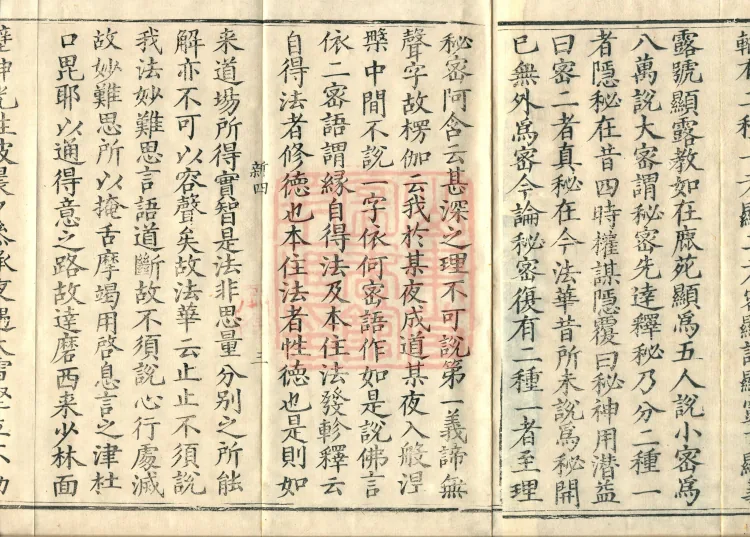 露號顯露教如在鹿苑顯爲五人說小密爲
八萬說大密謂秘密先達釋秘乃分二種一
者隱秘在昔四時權謀隱覆曰秘神用潛益
曰密二者真秘在今法華昔所未說爲秘開
已無外爲密今論秘密復有二種一者至理
秘密阿含云甚深之理不可說第一義諦無
聲字故楞伽云我於某夜成道某夜入般涅
槃中間不說一字依何密語作如是說佛言
依二密語謂緣自得法及本住法發軫釋云
自得法者修德也本住法者性德也是則如
新四
三
来道場所得實智是法非思量分別之所能
解亦不可以容聲矣故法華云止止不須說
我法妙難思言語道斷故不須說心行處滅
故妙難思所以掩舌摩竭用啓息言之津杜
口毘耶以通得意之路故達磨西来少林面